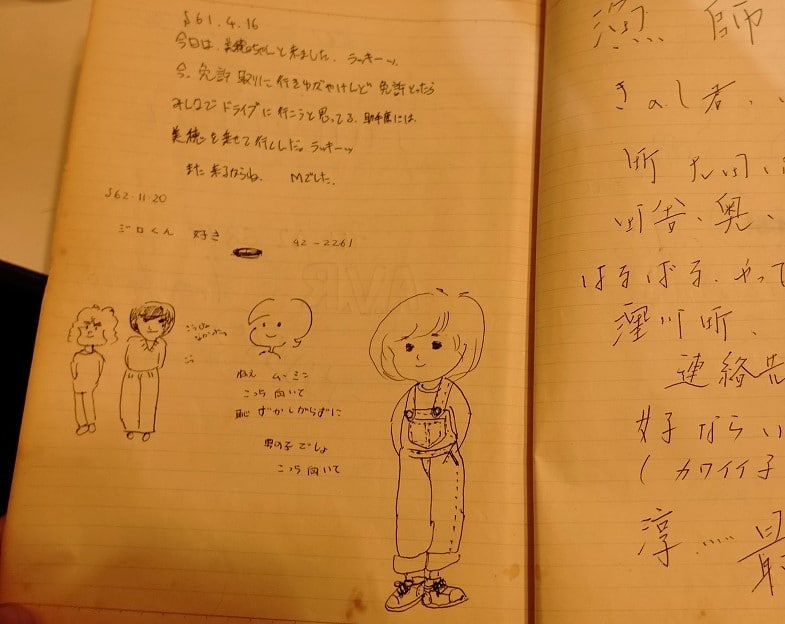 S61.4.16
今日は、美穂ちゃんと来ました、ラッキーッ
今、免許取りに行きゆがやけんど免許とったら
みんなでドライブに行こうと思ってる、助手席には、
美穂を乗せて行くんだ。ラッキーッ
また来るからね、 Mでした。
S62.11.20
ジロくん 好き
42-2261
ねえ ムーミン
こっち向いて
恥ずかしがらずに
男の子でしょ
こっち向いて
師
きのし君、
町
町舎、奥、
はるばる、やって
窪川町、
連絡先
好なら
(カワイイ子
淳……最